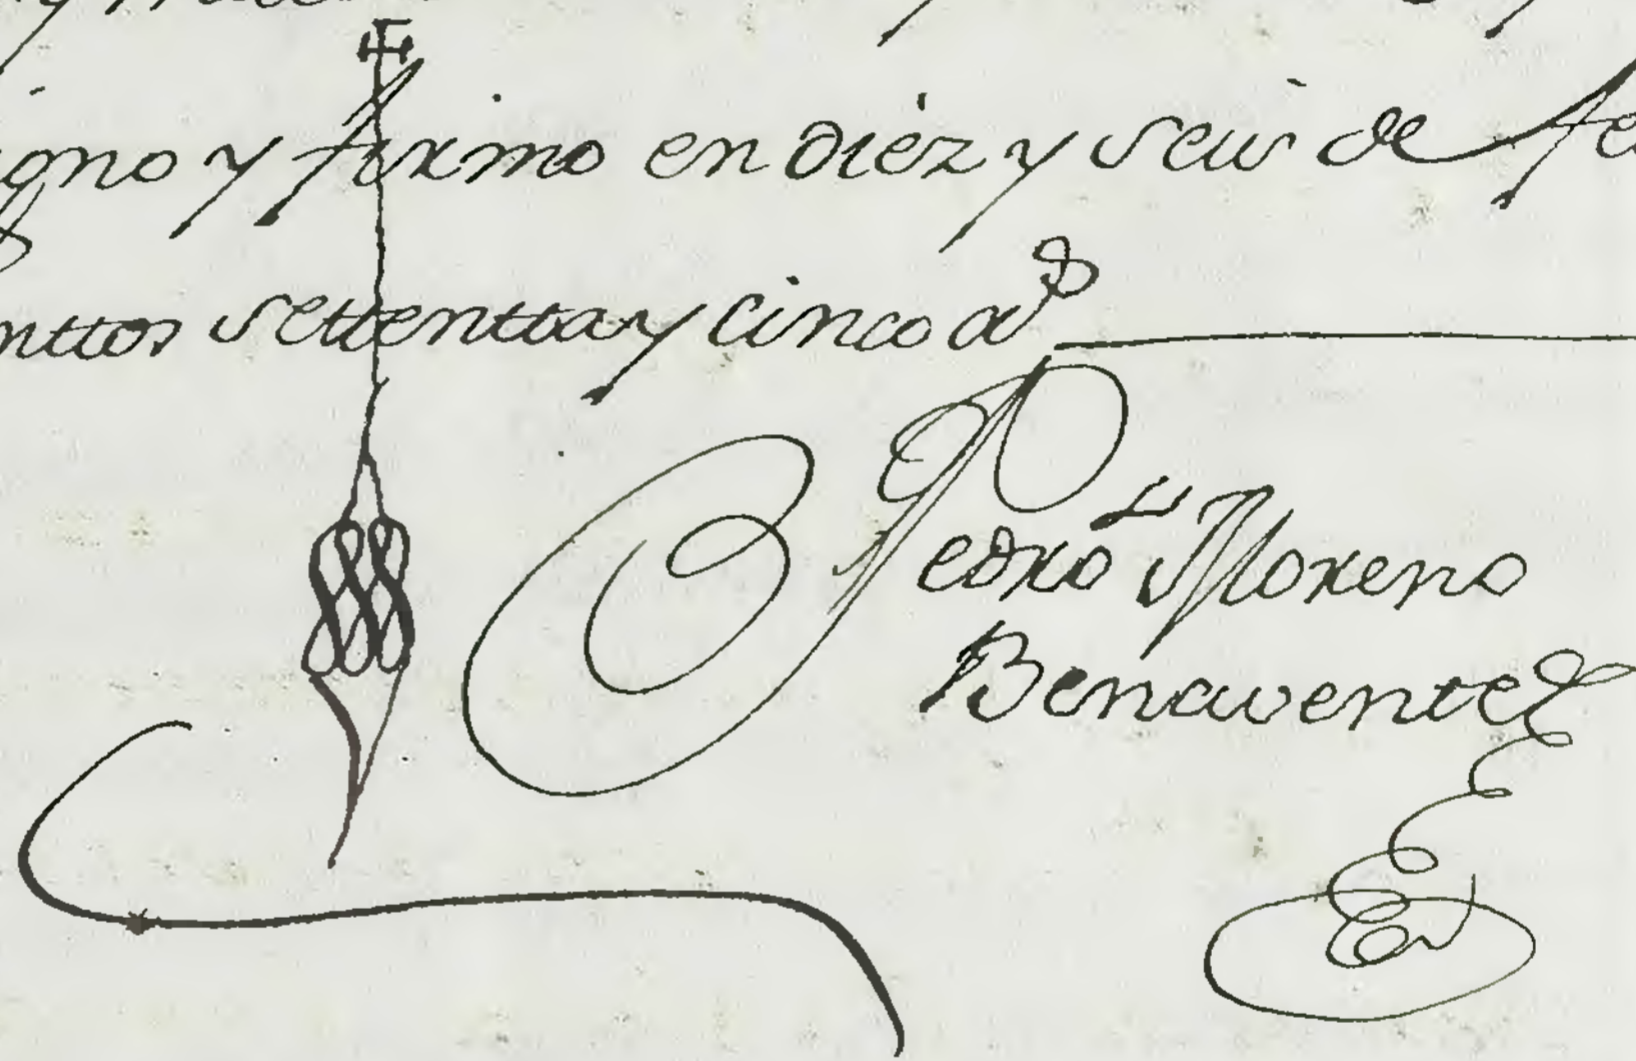 igno y firmo en diez y seis de fe
nttos settentta y cinco as
Pedro Moreno
Benavente